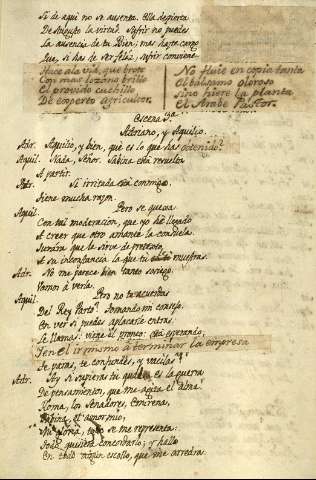 Si de aqui no se ausenta. Ella despierta
De Augusto la virtud. Sufrir no puedes
La ausencia de tu Bien; mas harto cargo
Que, si has de ser feliz, sufrir conviene.
Hace a la vid, que brote
Con mas lozano brillo
El provido cuchillo
De experto agricultor.
No fluie en copia tanta
El balsamo oloroso
Sino hiere la planta
El Arabe Pastor.
Escena 3ª
Adriano, y Aquilio.
Adr. Aquilio, y bien, que es lo que has obtenido?
Aquil. Nada, Señor. Sabina está resuelta
A partir.
Adr. Si irritada está conmigo,
tiene mucha razon.
Aquil. Pero se quexa
Con tal moderacion, que yo hé llegado
A creer que otro amante la consuela.
que le sirve de pretexto,
A su inconstancia la que tu muestras.
Adr. No me parece bien tanto sosiego.
Vamos á verla.
Aquil. Pero no te acuerdas
Del Rey Parto? Tomando mi consejo,
En ver si puedes aplacarle entra,
Le llamas: viene el pronto: está esperando,
Y en el ir mismo á terminar la empresa
Te paras, te confundes, y vacilas?
Adr. Ay si supieras tu qual es la guerra
De pensamientos, que me agita el alma!
Roma, los Senadores, Emirena,
Sabina, el agnormio,
Mi gloria, todo se me representa:
Todo quisiera concertarlo; y hallo
En todo algun escollo, que me arredra.